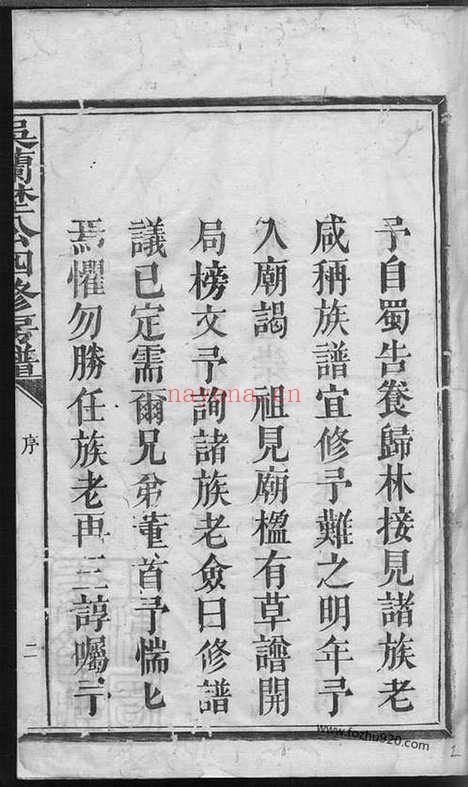 予自蜀告養歸林接見諸族老
咸稱族譜宜修予難之明年予
入廟謁 祖見廟楹有草譜開
局榜文予詢諸族老僉曰修譜
議已定需爾兄弟董首予惴匕
焉懼勿勝任族老再三諄囑予
吳蘭埜公四修房譜
序
二
nayona.cn
www.fozhu920.com